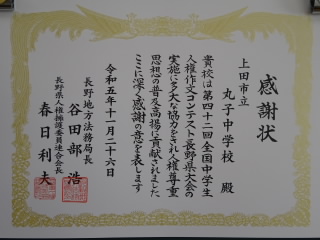 感謝状
上田市立
丸子中学校 殿
貴校は第四十二回全国中学生
人権作文コンテスト長野県大会の
実施に多大な協力をされ人権尊重
思想の普及高揚に貢献されました
ここに深く感謝の意を表します
令和五年十一月二十六日
長野地方法務局長
谷田部浩
長野県人権擁護委員連合会長
春日利夫